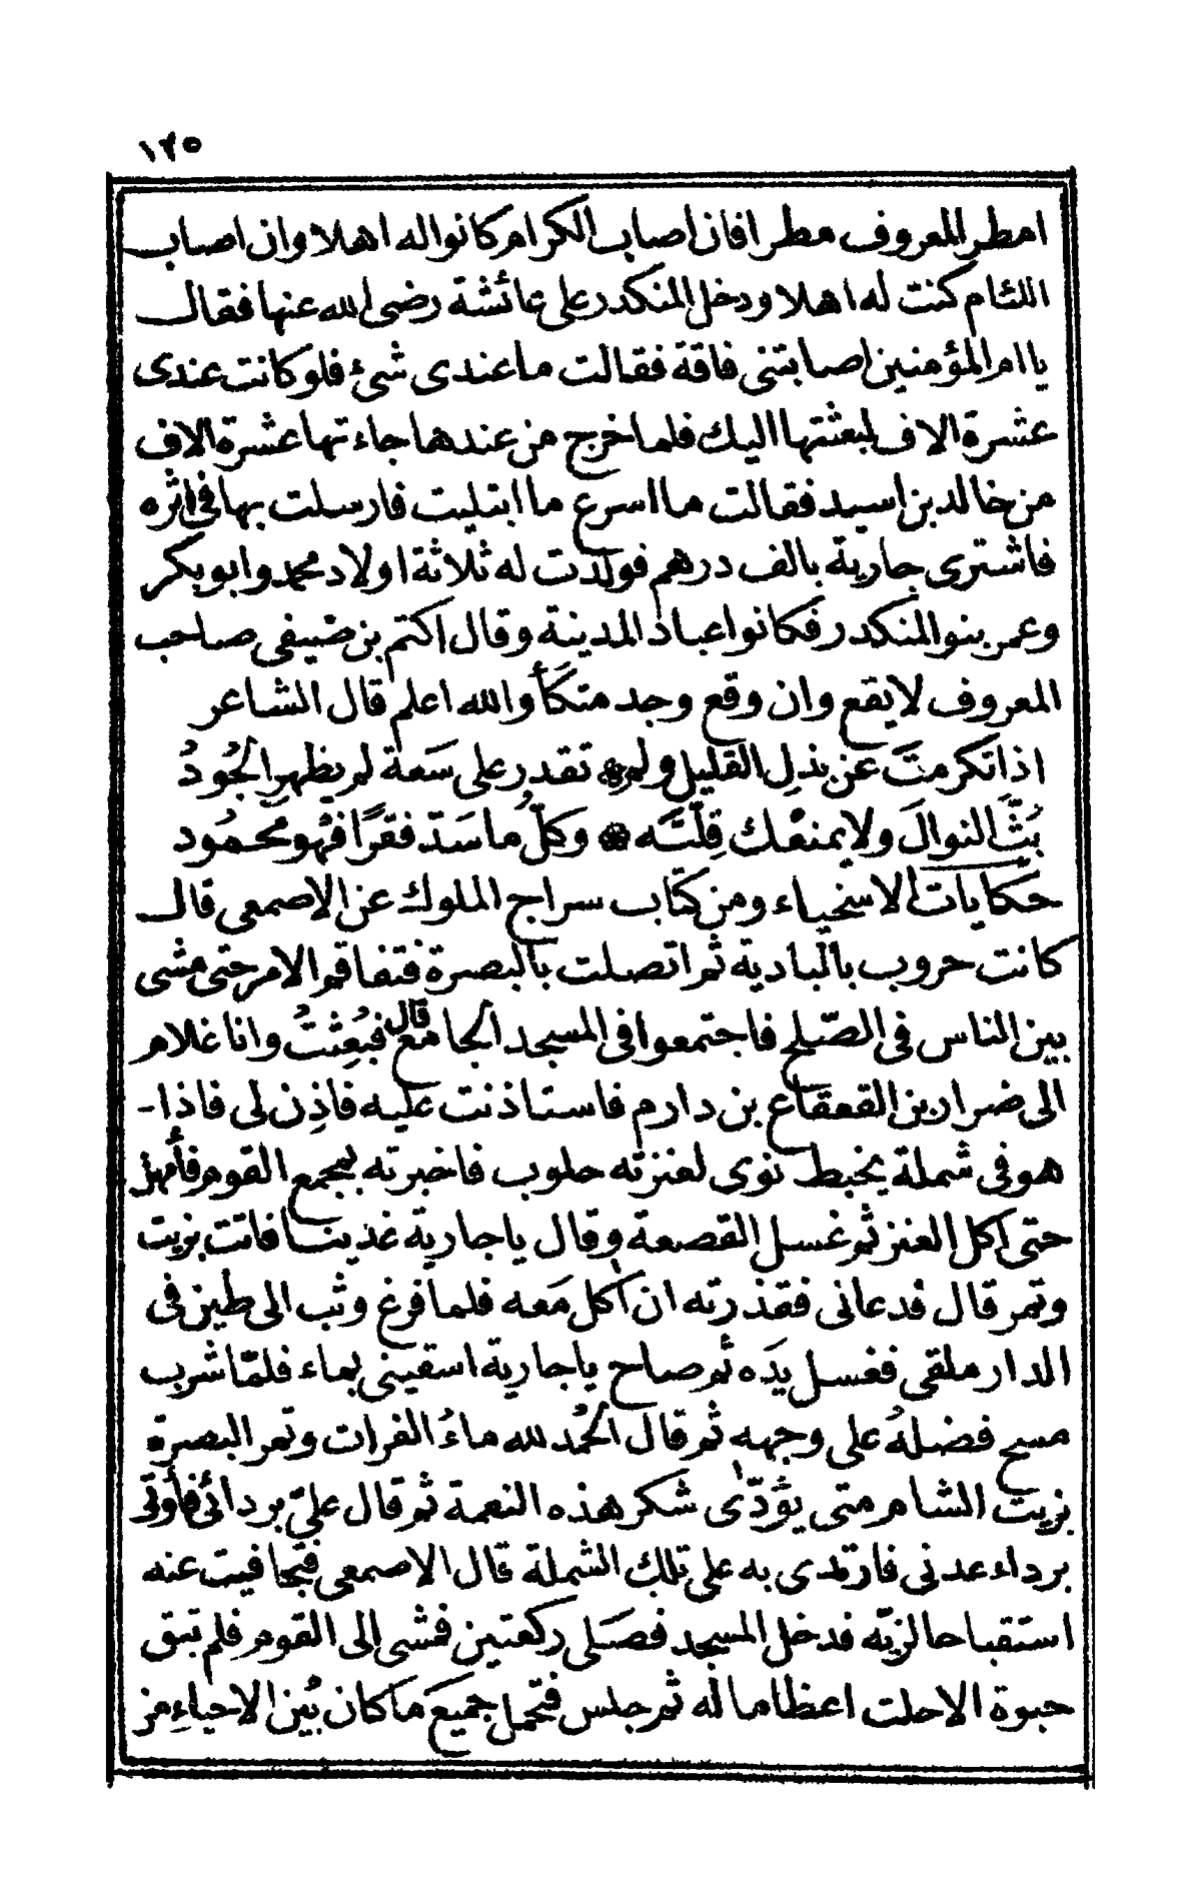 ١٢٥
امطر المعروف مطرا فان اصاب الكرام كانوا له اهلا وان اصاب
اللئام كنت له اهلا ودخل المنكدر على عائشة رضى الله عنها فقال
يا ام المؤمنين اصابتنى فاقة فقالت ما عندى شئ فلو كانت عندى
عشرة الاف لبعثتها اليك فلما خرج من عندها جاءتها عشرة الاف
من خالد بن اسيد فقالت ما اسرع ما ابتليت فارسلت بها فى اثره
فاشترى جارية بالف درهم فولدت له ثلاثة اولاد محمد وابو بكر
وعمر بنو المنكدر فكانوا عباد المدينة وقال اكتم بن ضيفى صاحب
المعروف لا يقع وان وقع وجد متكأ والله اعلم قال الشاعر
اذا تكرمتَ عن بذلِ القليل ولم ۞ تقدر على سَعة لم يظهرِ الجُودُ
بُثَّ النوالَ ولا يمنعْك قِلّتَه ۞ وكلُّ ما سَدّ فقرًا فهْو محمُود
حكايات الاسخياء ومن كتاب سراج الملوك عن الاصمعى قال
كانت حروب بالبادية ثم اتصلت بالبصرة فتفاقم الامر حتى مشى
بين الناس فى الصّلح فاجتمعوا فى المسجد الجامع قال فبُعِثْتُ وانا غلام
الى ضرار بن القعقاع بن دارم فاستاذنت عليه فاذِن لى فاذا -
هو فى شملة يخبط نوى لعنزته حلوب فاخبرته بمجمع القوم فأمهل
حتى اكل العنز ثم غسل القصعة وقال يا جارية غدينا فاتت بزيت
وتمر قال فدعانى فقذرته ان اكل مَعه فلما فرغ وثب الى طين فى
الدار ملقى فغسل يدَه ثم صاح يا جارية اسقينى بماء فلمّا شرب
مسح فضلهُ على وجهه ثم قال الحمْد لله ماءُ الفرات وتمر البصرة
بزيت الشام متى يؤدّى شكر هذه النعمة ثم قال علىّ بردائى فأوتى
برداء عدنى فارتدى به على تلك الشملة قال الاصمعى فتجافيت عنه
استقباحا لزيّه فدخل المسجد فصَلى ركعتين فمشى الى القوم فلم تبق
حبوة الا حلت اعظاما له ثم جلس فتحمل جميعَ ما كان بُين الاحياءِ من